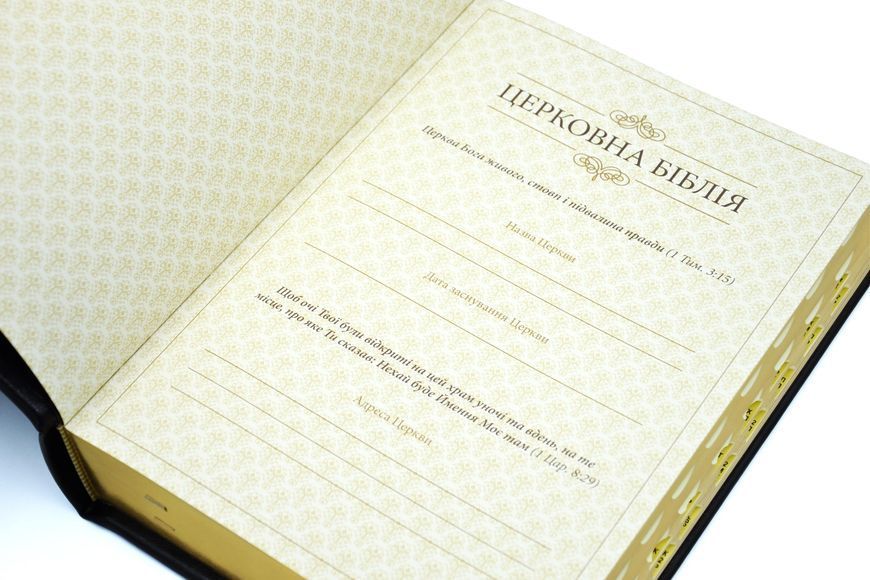 ЦЕРКОВНА БІБЛІЯ
Церква Бога живого, стовп і підвалина правди (1 Тим. 3:15)
Назва Церкви
Дата заснування Церкви
Щоб очі Твої були відкриті на цей храм уночі та вдень, на те
місце, про яке Ти сказав: Нехай буде Ймення Моє там (1 Цар. 8:29)
Адреса Церкви